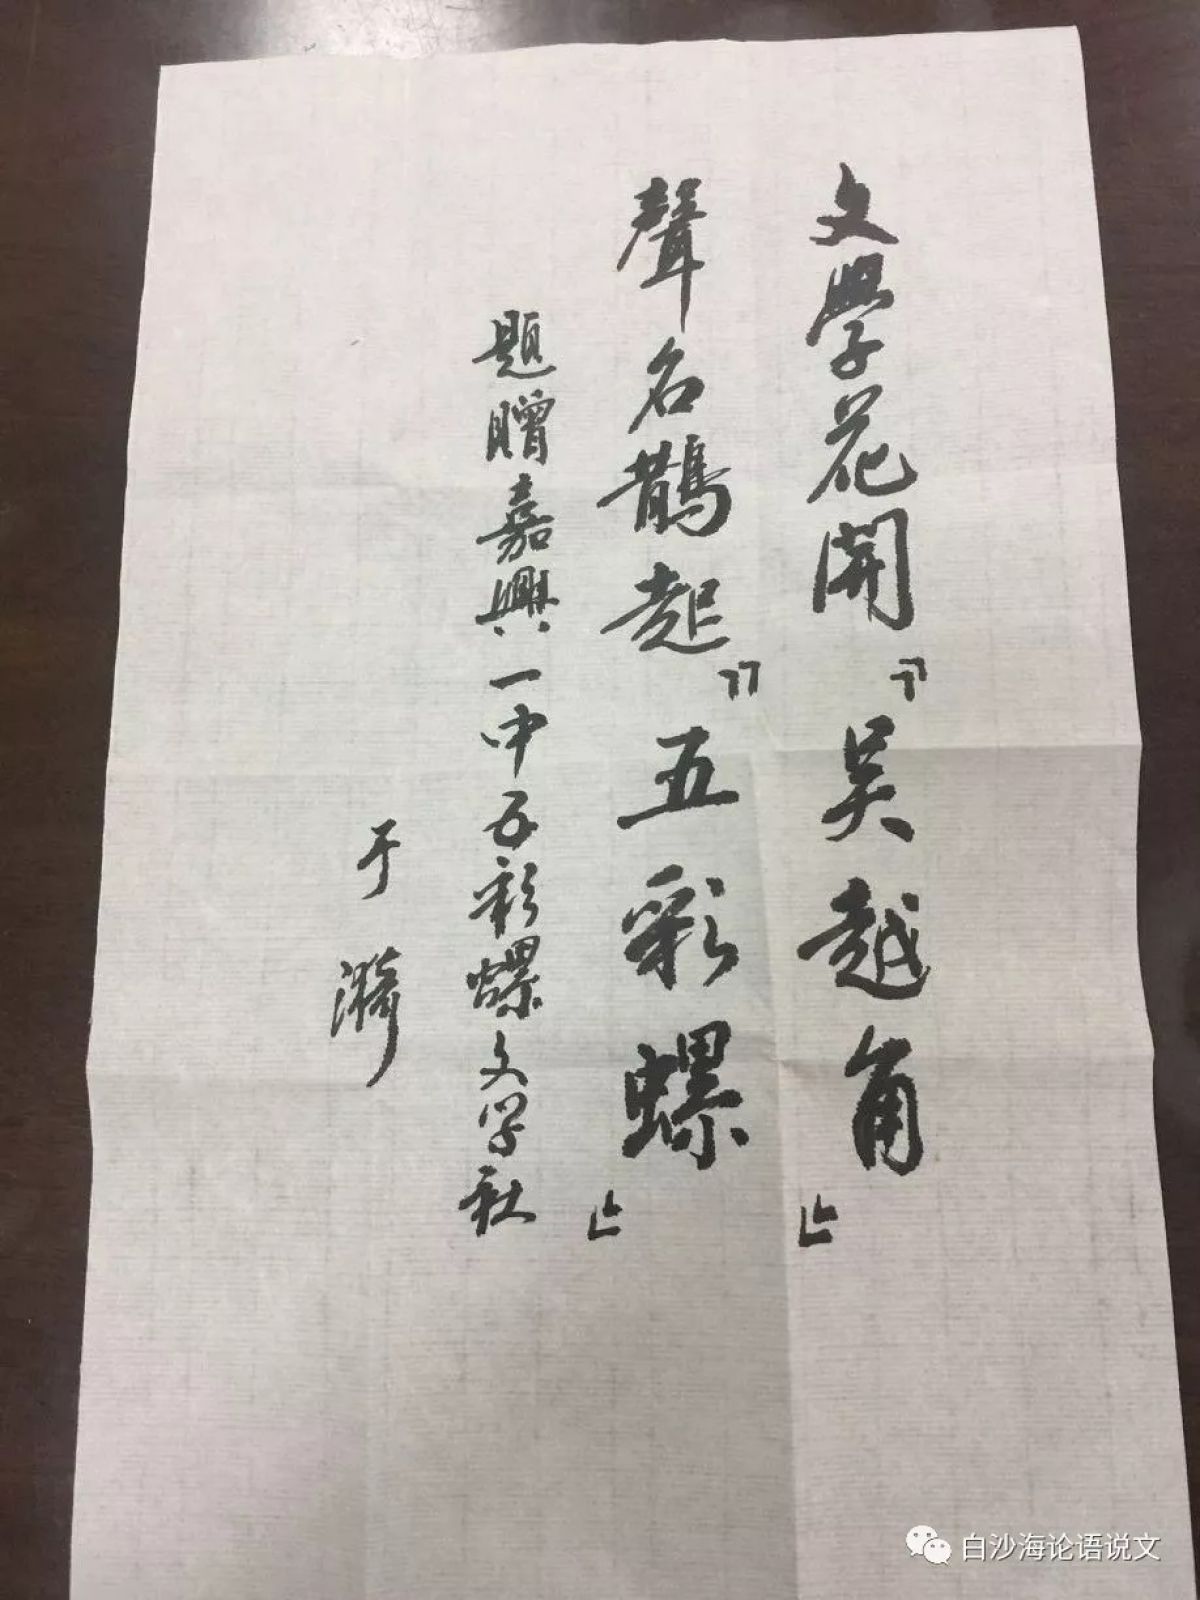 文學花開『吴越角』
聲名鵲起『五彩螺』
題贈嘉興一中五彩螺文学社
于漪
白沙海论语说文